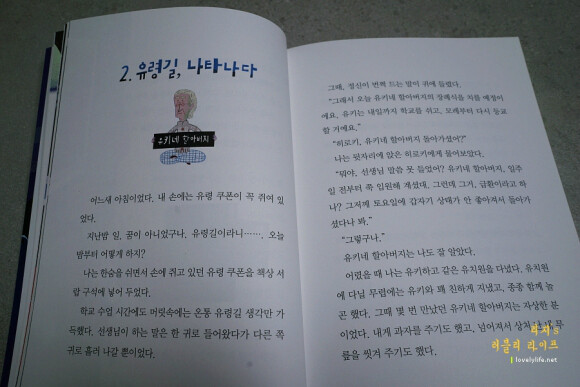 2. 유령길, 나타나다
유키네 할아버지
어느새 아침이었다. 내 손에는 유령 쿠폰이 꼭 쥐여 있
었다.
지난밤 일, 꿈이 아니었구나. 유령길이라니……. 오늘
밤부터 어떻게 하지?
나는 한숨을 쉬면서 손에 쥐고 있던 유령 쿠폰을 책상 서
랍 구석에 넣어 두었다.
학교 수업 시간에도 머릿속에는 온통 유령길 생각만 가
득했다. 선생님이 하는 말은 한 귀로 들어왔다가 다른 쪽
귀로 흘러 나갈 뿐이었다.
그때, 정신이 번쩍 드는 말이 귀에 들렸다.
“그래서 오늘 유키네 할아버지의 장례식을 치를 예정이
에요. 유키는 내일까지 학교를 쉬고, 모레부터 다시 등교
할 거예요.”
“히로키, 유키네 할아버지 돌아가셨어?”
나는 뒷자리에 앉은 히로키에게 물어보았다.
“뭐야, 선생님 말씀 못 들었어? 유키네 할아버지, 일주
일 전부터 쭉 입원해 계셨대. 그런데 그거, 급환이라고 하
나? 그저께 토요일에 갑자기 상태가 안 좋아져서 돌아가
셨다나 봐.”
“그렇구나.”
유키네 할아버지는 나도 잘 알았다.
어렸을 때 나는 유키하고 같은 유치원을 다녔다. 유치원
에 다닐 무렵에는 유키와 꽤 친하게 지냈고, 종종 함께 놀
곤 했다. 그때 몇 번 만났던 유키네 할아버지는 자상한 분
이었다. 내게 과자를 주기도 했고, 넘어져서 상처 난 무
릎을 씻겨 주기도 했다.
러블리 라이프
lovelylife.net